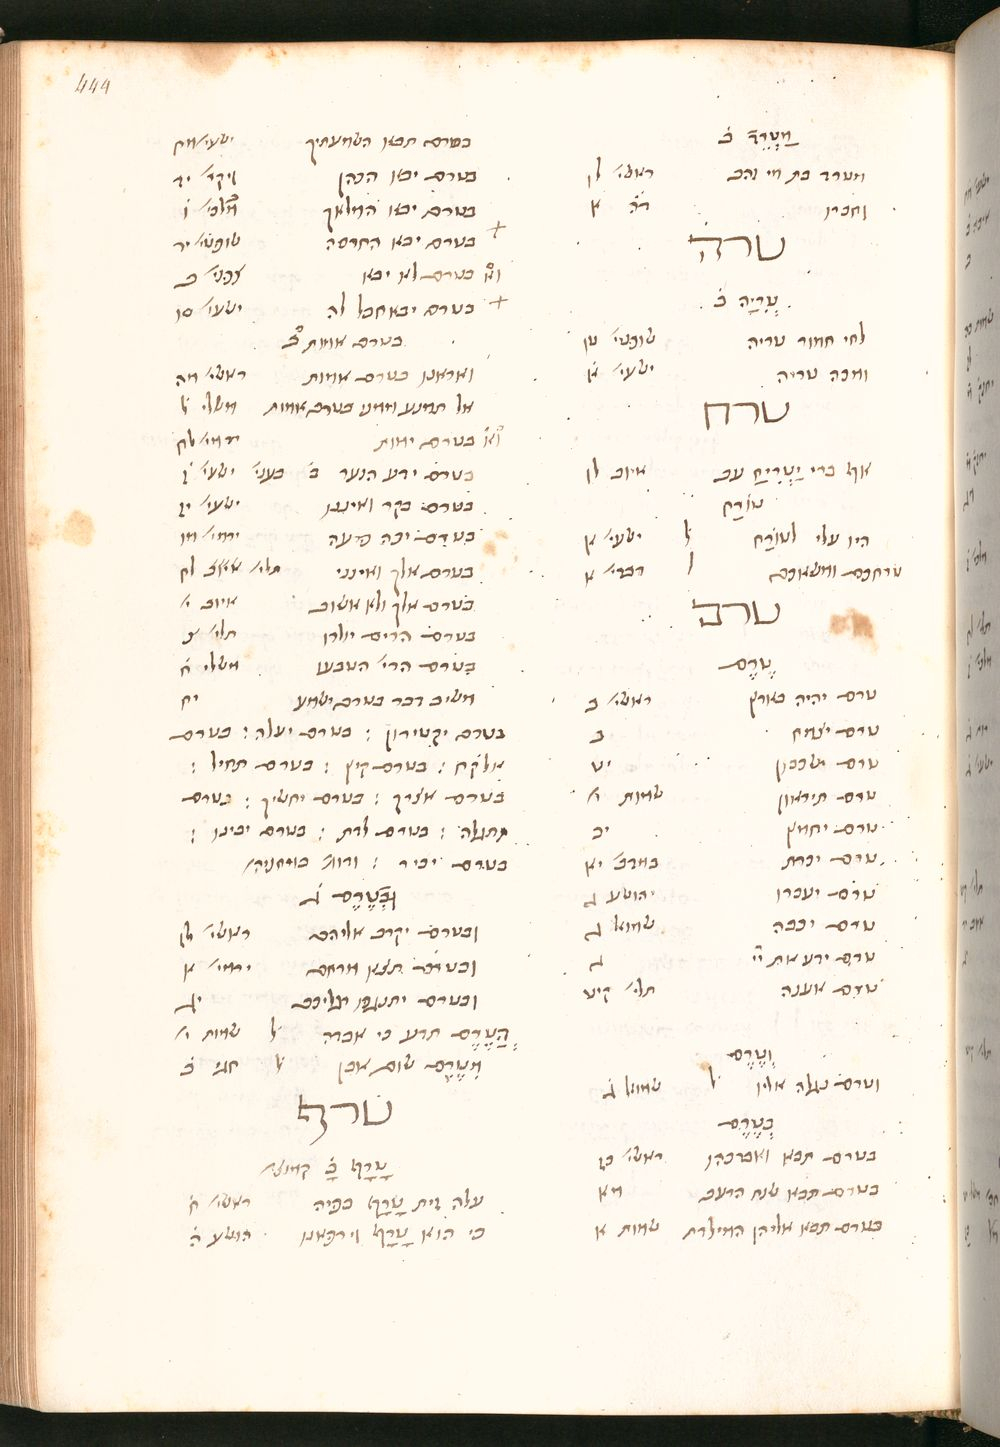 444
מַטְרֵד ב֗
מטרד בת מי זהב ראשי׳ לו
וחברו דה֗ א
טרה
טְרִיָה ב֗
לחי חמור טריה שופטי׳ טו
ומכה טריה ישעי׳ א֗
טרח
אף ברי יַטְרִיחַ עב איוב לז
טוֹרַח
היו עלי לטוֹרַח ל֗ ישעי׳ א
טרחכם ומשאכם ל דברי׳ א
טרם
טֶרֶם
טרם יהיה בארץ ראשי׳ ב
טרם יצמח ב
טרם ישכבון יט
טרם תיראון שמות י׳
טרם יחמץ יב
טרם יכרת במדב׳ יא
טרם יעברו יהושע ג
טרם יכבה שמוא׳ ג
טרם ידע את ייי ג
טרם אענה תלי׳ קיט
וְטֶרֶם
וטרם נגלה אליו ל שמוא׳ ג
בְּטֶרֶם
בטרם תבא ואברכהו ראשי׳ כז
בטרם תבא שנת הרעב מא
בטרם תבא אליהן המילדת שמות א
בטרם תבאו השמעתיך ישעי׳ מח
בטרם יבוא הכהן ויקר׳ יד
בטרם יבא המלאך מלכי׳ ו֗
בטרם יבא החרסה שופטי׳ יד
בטרם לא יבא צפני׳ ב
בטרם יבא חבל לה ישעי׳ סו
בטרם אמות ב֗
ואראנו בטרם אמות ראשי׳ מה
אל תמנע ממני בטרם אמות משלי ל֗
בטרם ימות ירמי׳ לח
בטרם ידע הנער ב֗ בעני׳ ישעי׳ ז֗
בטרם בקר ואיננו ישעי׳ יז
בטרם יכה פרעה ירמי׳ מז
בטרם אלך ואינני תלי׳ לח
בטרם אלך ולא אשוב איוב י׳
בטרם הרים יולדו תלי׳ צ
בטרם הרי׳ הטבעו משלי ח֗
משיב דבר בטרם ישמע יח
בטרם יקטירון : בטרם יעלה : בטרם
אולקח : בטרם קיץ : בטרם תחיל :
בטרם אצרך : בטרם יחשיך : בטרם
תתגלה : בטרם לדת : בטרם יבינו :
בטרם יכיר :
וּבְטֶרֶם ג֗
ובטרם יקרב אליהם ראשי׳ לז
ובטרם תצא מרחם ירמי׳ א
ובטרם יתנגפו רגליכם יג
הֲטֶרֶם תדע כי אבדה ל֗ שמות י׳
מִטֶּרֶם שום אבן ל֗ חגי ב֗
טרף
טָרָף ב֗
עלה זית טָרָף בפיה ראשי׳ ח֗
כי הוא טָרָף וירפאנו הושע ו֗